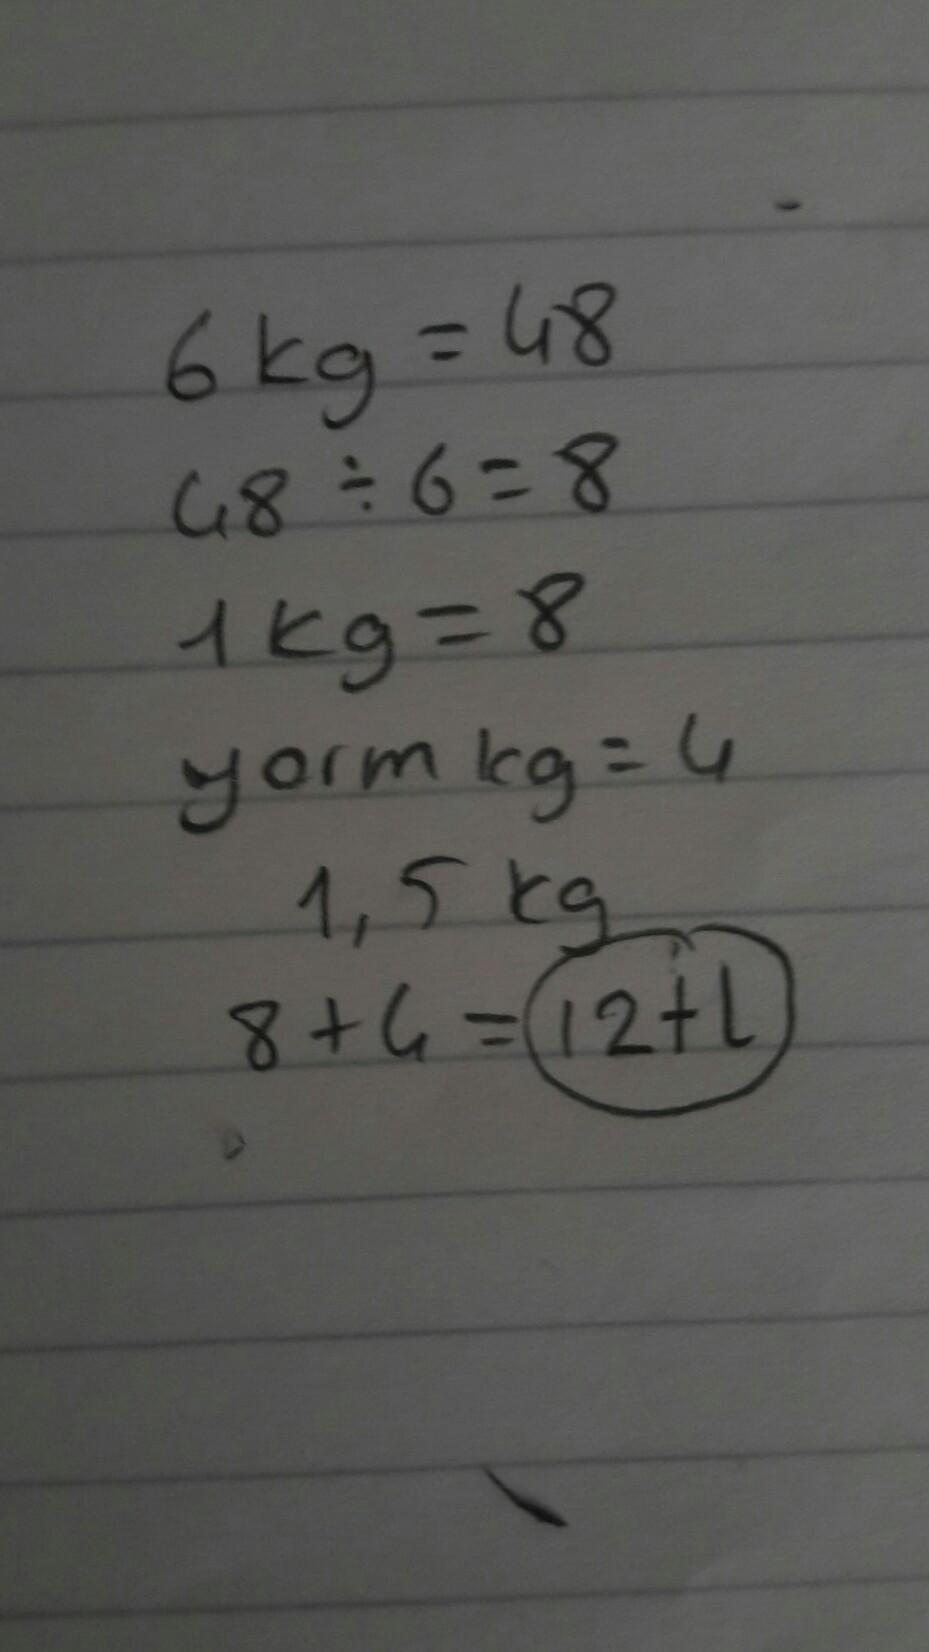 6 kg = 48
48 ÷ 6 = 8
1 kg = 8
yorm kg = 4
1,5 kg
8 + 4 = 12 tl